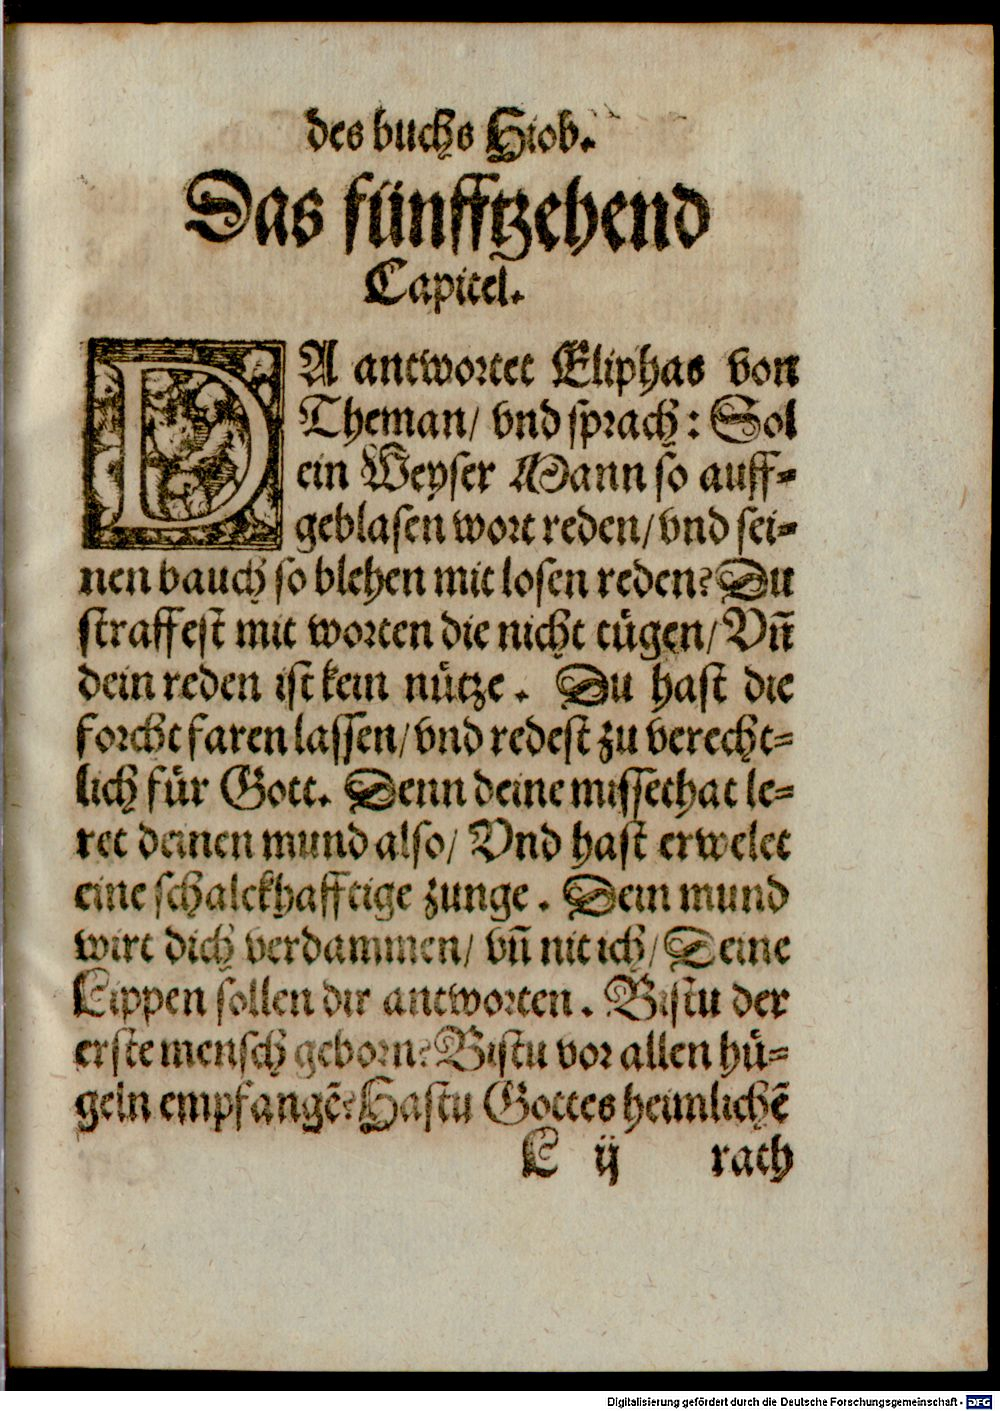 des buchs Hiob.
Das fünfftzehend
Capitel.
DA antwortet Eliphas von
Theman/ vnd sprach: Sol
ein Weyser Mann so auff-
geblasen wort reden/ vnd sei-
nen bauch so blehen mit losen reden? Du
straffest mit worten die nicht tügen/ Vñ
dein reden ist kein nütze. Du hast die
forcht faren lassen/ vnd redest zu verecht-
lich für Gott. Denn deine missethat le-
ret deinen mund also/ Vnd hast erwelet
eine schalckhafftige zunge. Dein mund
wirt dich verdammen/ vñ nit ich/ Deine
Lippen sollen dir antworten. Bistu der
erste mensch geborn? Bistu vor allen hü-
geln empfangẽ? Hastu Gottes heimlichẽ
L ij rath
Digitalisierung gefördert durch die Deutsche Forschungsgemeinschaft - DFG